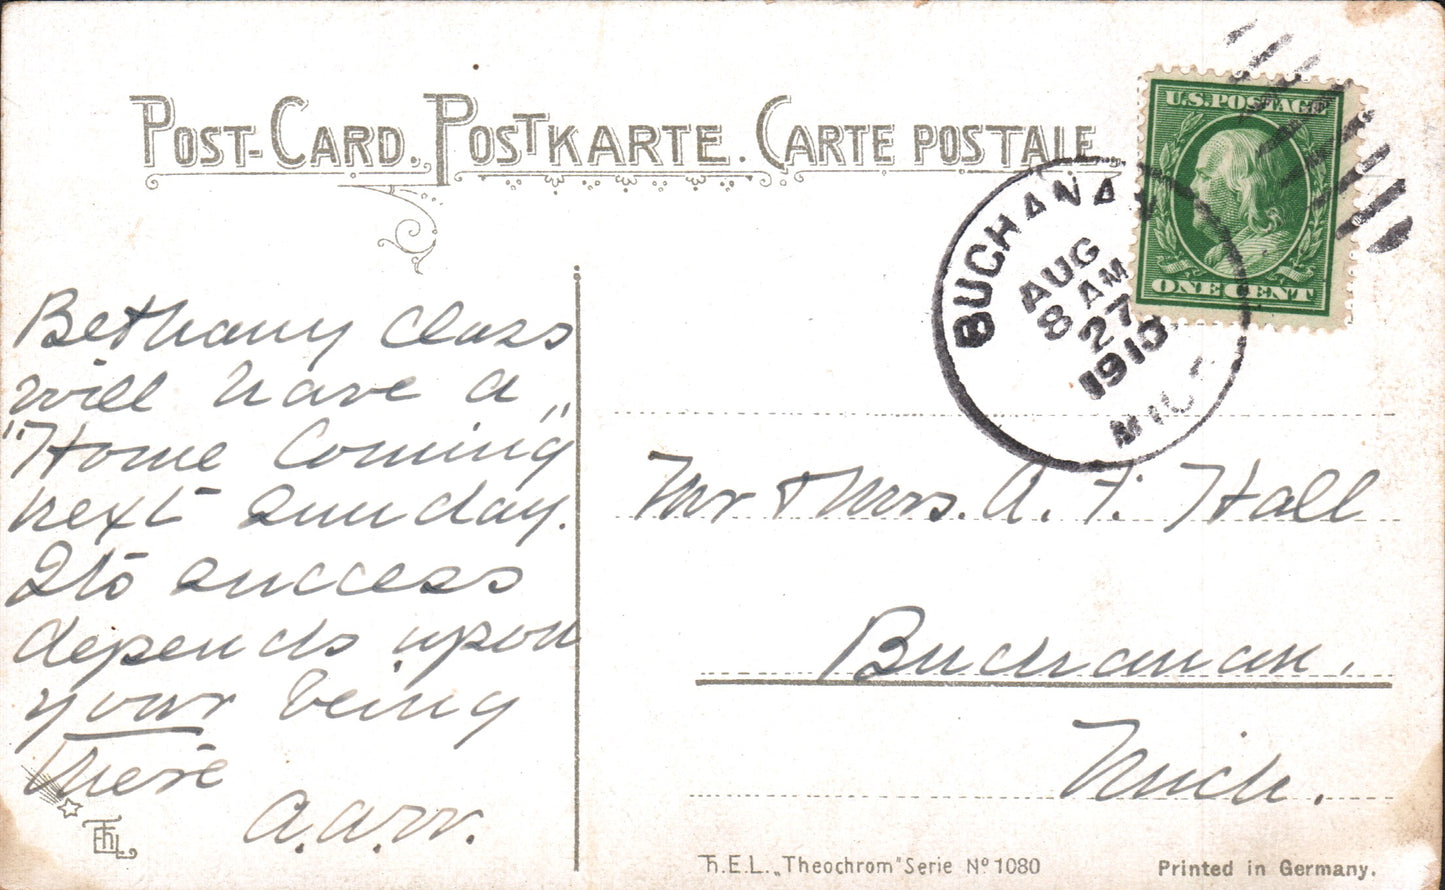 POST-CARD. POSTKARTE. CARTE POSTALE.
U.S. POSTAGE
ONE CENT
BUCHANAN
AUG
8 AM
27
1910
MICH
Bethany Class
will have a
"Home Coming"
next Sunday.
Its success
depends upon
your being
here
Mr & Mrs. A. F. Hall
Buchanan.
Mich.
ThEL
Th.E.L. „Theochrom" Serie Nº 1080
Printed in Germany.